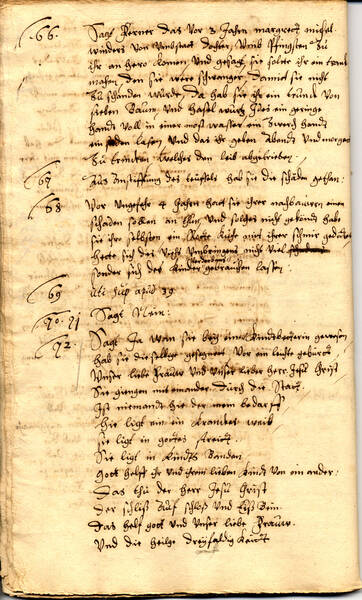 66. Sagt ferner das vor 3 Jahren margreth michel
winders von Umbstatt dochter, Umb Pfingsten zu
ihr an herro komen und gesagt sie solte ihr ein tranck
machen, den sie were schwanger, damit sie nit
zu schanden würde, da hab sie ihr ein trunck von
Baum, und haselwurtz ein geringe
handt voll in einer most wasser ein handt
sieden lasen, und das ihr geben Abends und morgen
zu trincken welches den leib abgetrieben:
67 Aus Anstifftung des teuffels hab sie die schäden gethan:
68 Vor Ungefehr 4 Jahren hatt sie ihrer nachbaürin einen
schaden sollen an thun und solches nicht gekönt habe
sie ihr selbsten ein Kuhe mit ihrer schmir
hette sich des nicht viel
sonder sich der Kinder gebrauchen lassen
69 Uti sup art. 19
70. 71 Sagt Nein:
72. Sagt Ja wan sie bey einer Kindtbetterin gewesen
hab sie dieselbige gesegnet vor ein leichte geburt
Unser liebe Frauw und Unser lieber herr Jesu Christ
Sie giengen mit einander durch die Statt
Ist niemandt hie der mein bedarff
Hie ligt ein ein krancket weib
Sie ligt in gottes
Sie ligt in Kindts Banden
Gott helff ihr und ihrem lieben Kindt von ein ander:
Das thu der herr Jesu Christ
der schliß Auf schloß und Eiß Bein
Das helf gott und Unser liebe Frauw
Und die heilge dreyfaldig Keidt